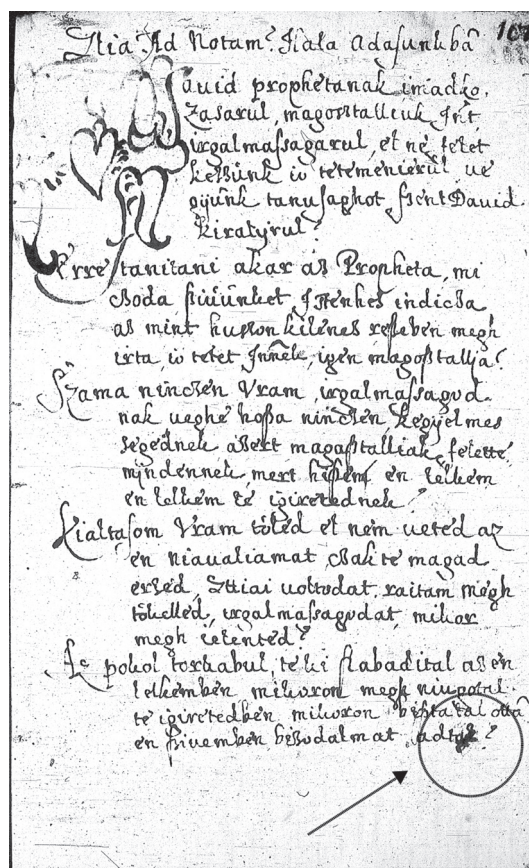 107
Alia Ad Notam. Hala adasunkba
Dauid prophetanak imadko,
zasarul, magosztalliuk Int
irgalmassagarul, el ne felet
kezünk iw tetemenierül ue
gijünk tanusaghot, szent Dauid
kiralyrul.
Erre tanitani akar az Propheta, mi
czoda sziuünket Istenhes indicza
az mint huszon kilenes reszeben megh
irta, iw tetet Innek, igen magosztallja.
Szama ninczen Vram, irgalmassagod
nak ueghe hossa ninczen, kegijelmes
segednek azert magasztalliak felette
mindennek, mert hissem en lelkem
en lelkem te igiretednek.
Kialtasom Vram töled el nem ueted az
en niaualiamat, czak te magad
erzed, Attiai uoltodat, raitam megh
tökelled, irgalmassagodat, mikor
megh ielented.
Az pokol torkabul, te ki szabadital az en
lelkemben mikoron megh niugotal.
te igiretedben, mikoron bisztatal
en sziuemben bizodalmat